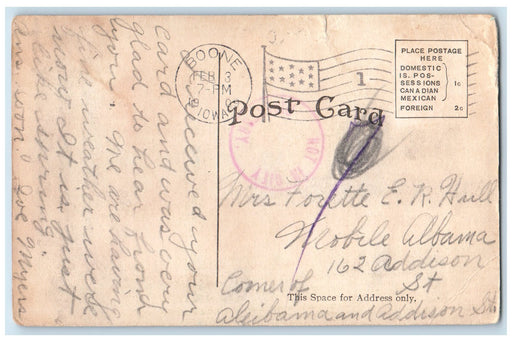 BOONE
FEB 3
7-PM
IOWA
1
Post Card
PLACE POSTAGE
HERE
DOMESTIC
IS. POS-
SESSIONS
CANADIAN
MEXICAN
1c
FOREIGN 2c
NOT IN CITY
received your
card and was very
glad to hear from
you. We are having
fine weather we
now It is just
like spring.
Myers
Mrs E. R. Hull
Mobile Albama
162 Addison
St
Corner of
This Space for Address only.
and Addison St.